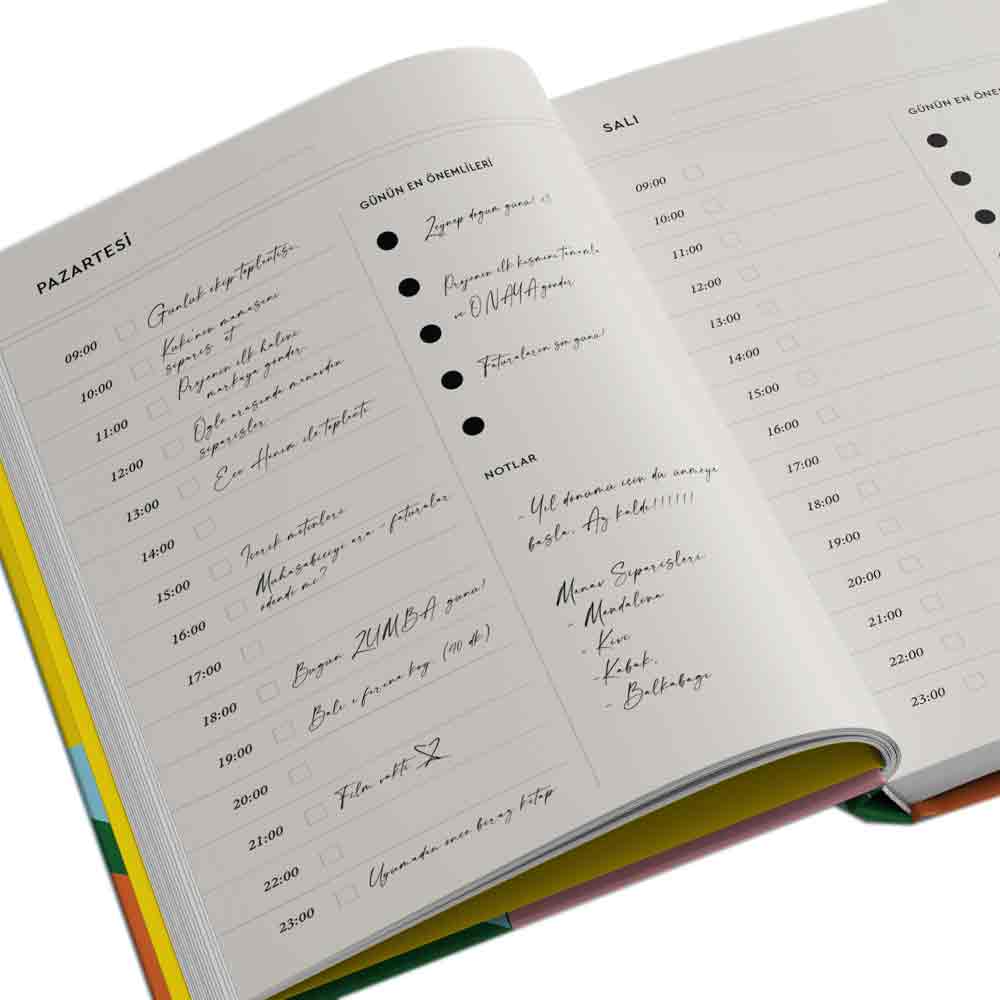 PAZARTESİ
09:00 Günlük ekip toplantısı
10:00 Kuki'nin mamasını
sipariş et
11:00 Projenin ilk halini
markaya gönder.
12:00 Öğle arasında manavdan
siparişler
13:00 Ece Hanım ile toplantı
14:00
15:00 İçerik metinleri
16:00 Muhasebeciyi ara - faturalar
ödendi mi?
17:00
18:00 Bugün ZUMBA günü!
19:00 fırına koy (40 dk)
20:00
21:00 Film vakti
22:00
23:00 Uyumadan önce biraz kitap
GÜNÜN EN ÖNEMLİLERİ
Zeynep doğum günü!
Projenin ilk kısmını tamamla
ve ONAYA gönder
Faturaların son günü!
NOTLAR
- Yıl dönümü için düşünmeye
başla. Ay kaldı!!!!!!!
Manav Siparişleri
- Mandalina
- Kivi
- Kabak,
- Balkabağı
SALI
09:00
10:00
11:00
12:00
13:00
14:00
15:00
16:00
17:00
18:00
19:00
20:00
21:00
22:00
23:00
GÜNÜN EN ÖNE